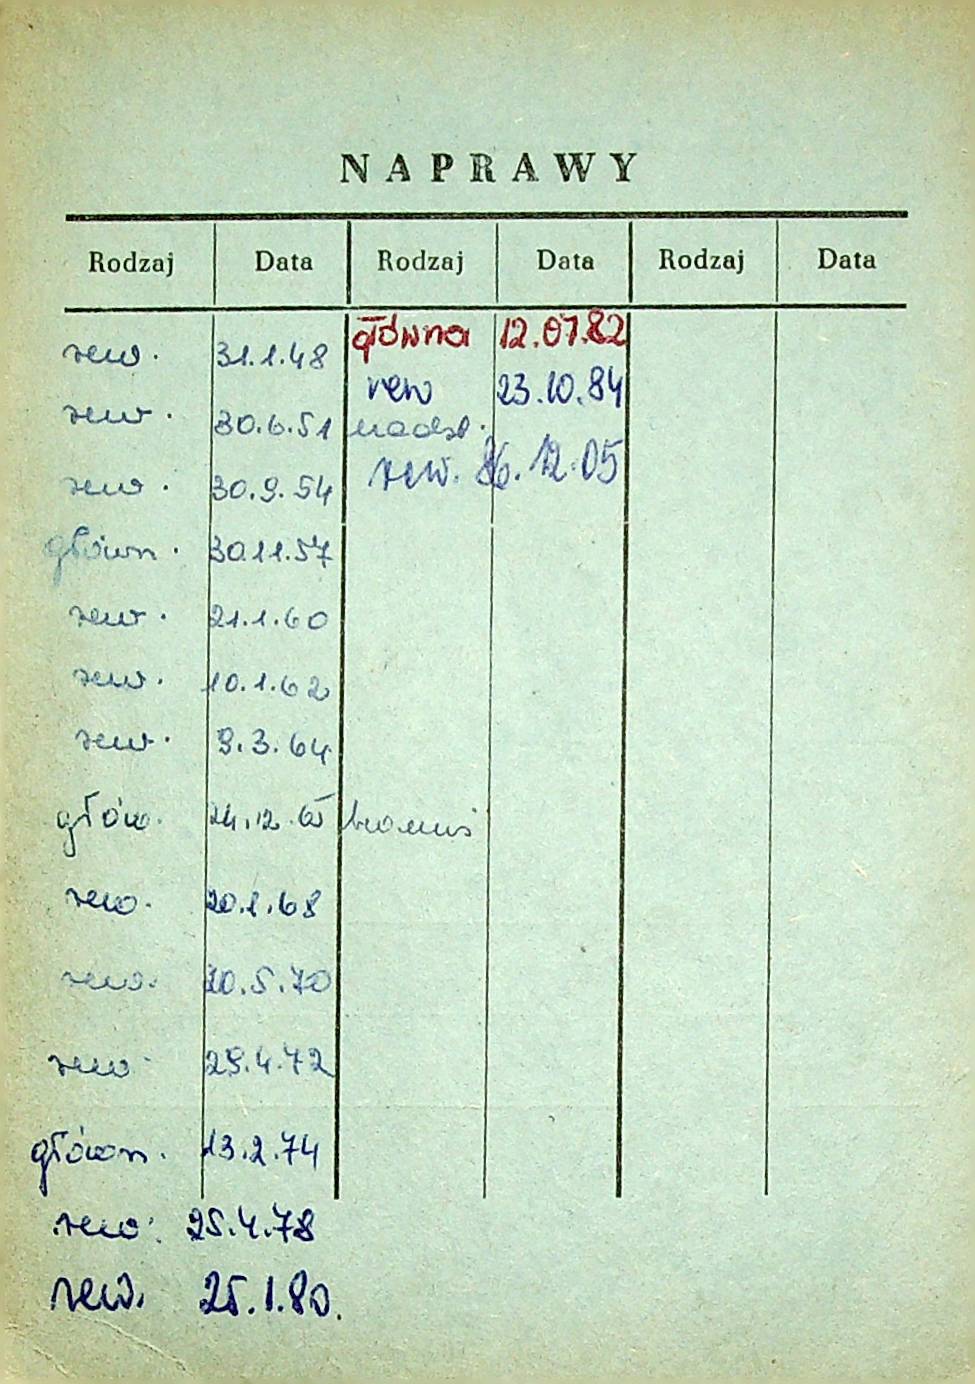 NAPRAWY
Rodzaj Data Rodzaj Data Rodzaj Data
rew. 31.1.48 główna 12.07.82
rew. 30.6.51 rew 23.10.84
nadst.
rew. 30.9.54 rew. 86.12.05
główn. 30.11.57
rew. 21.1.60
rew. 10.1.62
rew. 9.3.64
głów. 24.12.65
rew. 20.1.68
rew. 20.5.70
rew. 29.4.72
główn. 13.2.74
rew. 25.4.78
rew. 25.1.80.